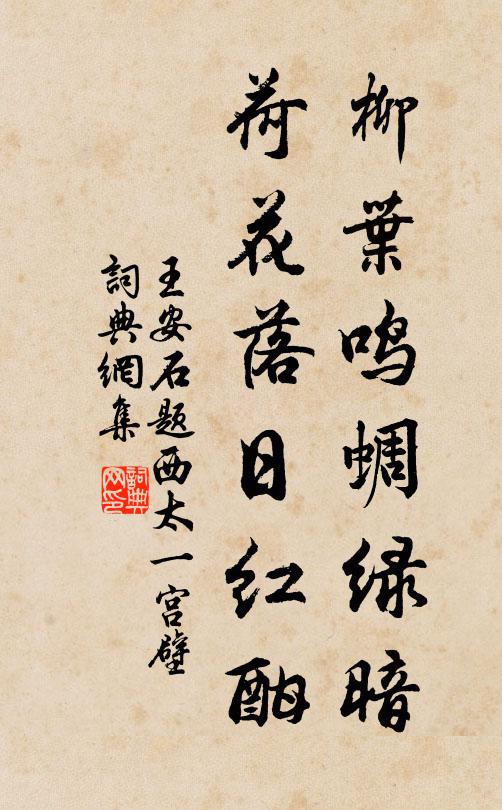 柳葉鸣蜩绿暗
荷花落日红酣
王安石题西太一宫壁
詞典網集
詞典
网印